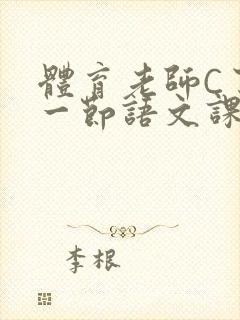 體育老師C
一節語文課
李根